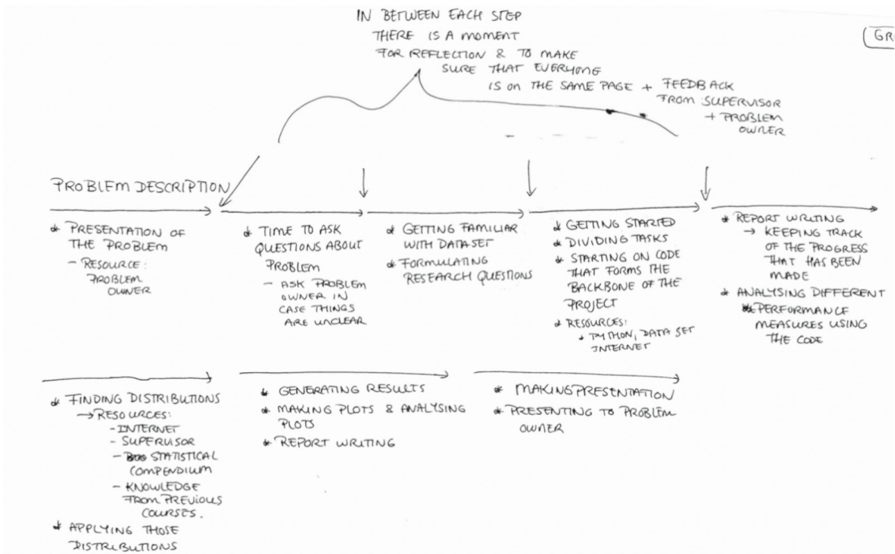 IN BETWEEN EACH STEP
THERE IS A MOMENT
FOR REFLECTION & TO MAKE
SURE THAT EVERYONE
IS ON THE SAME PAGE + FEEDBACK
FROM SUPERVISOR
+ PROBLEM
OWNER
PROBLEM DESCRIPTION
* PRESENTATION OF
THE PROBLEM
- RESOURCE:
PROBLEM
OWNER
* TIME TO ASK
QUESTIONS ABOUT
PROBLEM
- ASK PROBLEM
OWNER IN
CASE THINGS
ARE UNCLEAR
* GETTING FAMILIAR
WITH DATASET
* FORMULATING
RESEARCH QUESTIONS
* GETTING STARTED
* DIVIDING TASKS
* STARTING ON CODE
THAT FORMS THE
BACKBONE OF THE
PROJECT
* RESOURCES:
PYTHON, DATA SET
INTERNET
* REPORT WRITING
→ KEEPING TRACK
OF THE PROGRESS
THAT HAS BEEN
MADE
* ANALYSING DIFFERENT
PERFORMANCE
MEASURES USING
THE CODE
* FINDING DISTRIBUTIONS
→ RESOURCES:
- INTERNET
- SUPERVISOR
- STATISTICAL
COMPENDIUM
- KNOWLEDGE
FROM PREVIOUS
COURSES.
* APPLYING THOSE
DISTRIBUTIONS
* GENERATING RESULTS
* MAKING PLOTS & ANALYSING
PLOTS
* REPORT WRITING
* MAKING PRESENTATION
* PRESENTING TO PROBLEM
OWNER